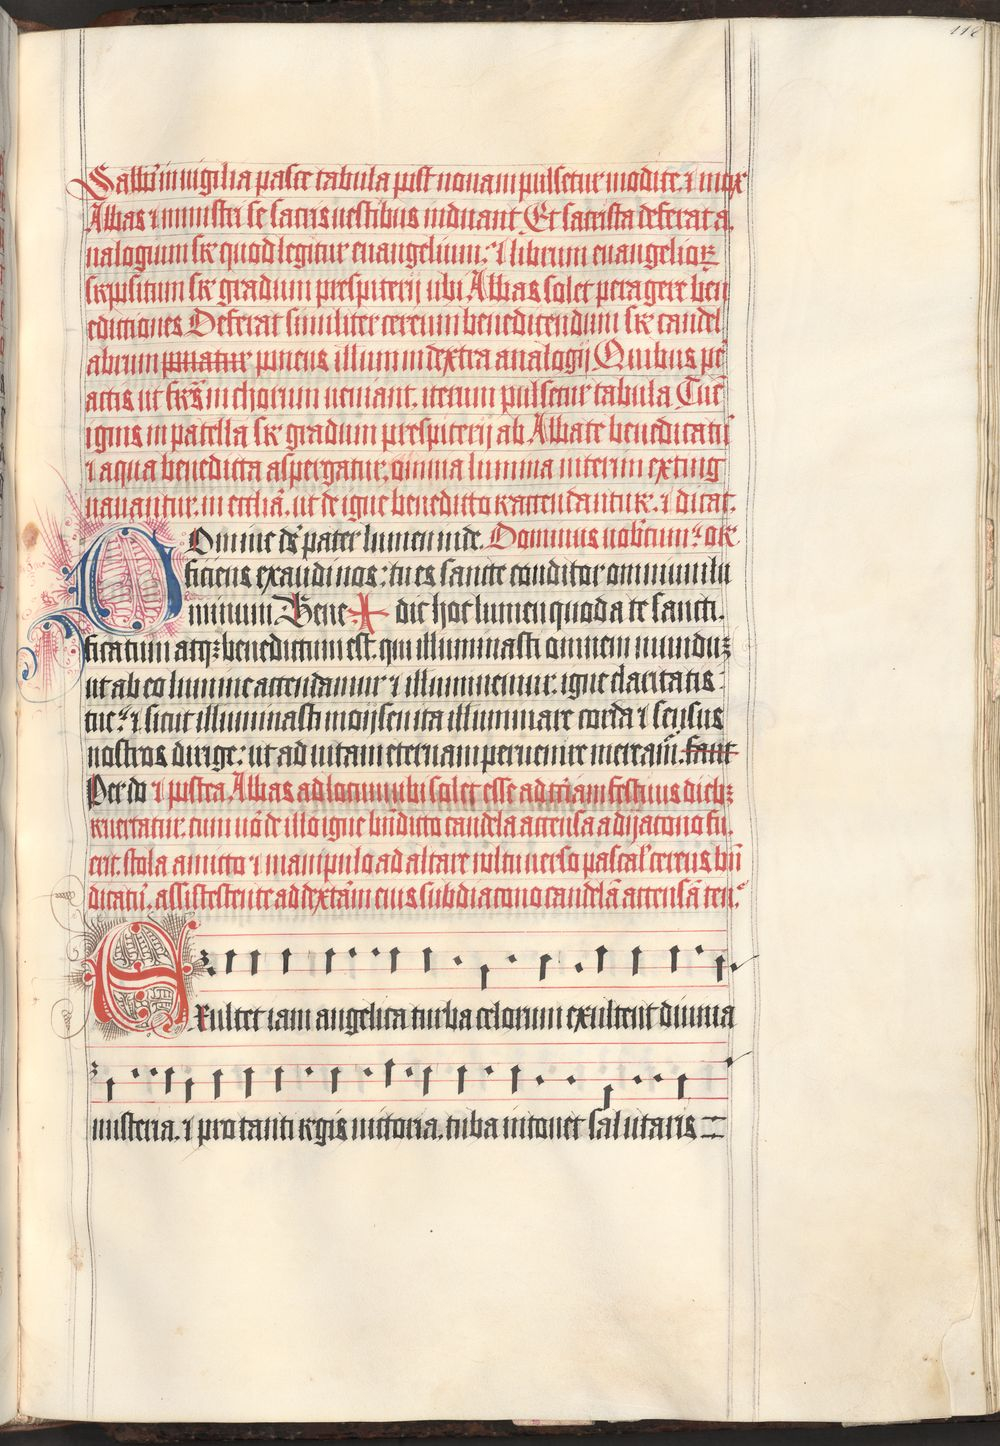 118
Sabbō in vigilia pasce tabula post nonam pulsetur modice. ⁊ mox
Abbas ⁊ ministri se sacris vestibus induant. Et sacrista deferat a
nalogium sr̄ quod legitur euangelium: ⁊ librum euangelioꝝ
positum sr̄ gradum prespiterij ubi Abbas solet peragere ben
edictiones Deferat similiter cereum benedicendum sr̄ candel
abrum ponens illum in dextra analogij Quibus pe
actis ut frēs in chorum veniant. iterum pulsetur tabula Tūc
ignis in patella sr̄ gradum prespiterij ab Abbate benedicatʳ
⁊ aqua benedicta aspergatur. omnia lumina interim exting
uantur. in ecclīa. ut de igne benedicto reaccendantur. ⁊ dicat.
Domine dˢ pater lumen inde. Dominus vobiscum. or
ficiens exaudi nos: tu es sancte conditor omnium lu
minum Bene ✠ dic hoc lumen quod a te sancti
ficatum atqꝫ benedictum est. qui illuminasti omnem munduꝫ
ut ab eo lumine accendamur ⁊ illuminemur. igne claritatis
tue: ⁊ sicut illuminasti moysen ita illuminare corda ⁊ sensus
nostros dirige: ut ad vitam eternam pervenire meream̄.
Per do ⁊ postea. Abbas ad locum ubi solet esse ad tciam festivis diebꝫ
revertatur. cum vo de illo igne bndicto candela accensa a dyacono fu
erit. stola amicto ⁊ manipulo ad altare vultu verso pascal' cereus bn̄
dicatʳ. assistente ad dextām eius subdiacono candelā accensā ten.
Exultet iam angelica turba celorum exultent divina
misteria. ⁊ pro tanti regis victoria. tuba intonet salutaris